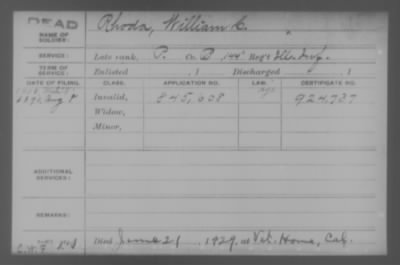 DEAD
NAME OF SOLDIER: Rhoda, William C.
SERVICE: Late rank, P. Co. B, 144" Reg't Ills. Inf.
TERM OF SERVICE: Enlisted , 1 Discharged , 1
DATE OF FILING. CLASS. APPLICATION NO. LAW. CERTIFICATE NO.
1890, Aug 8 Invalid, 845,608 924,737
Widow,
Minor,
ADDITIONAL SERVICES:
REMARKS:
Died June 21, 1929, at Vet. Home, Cal.